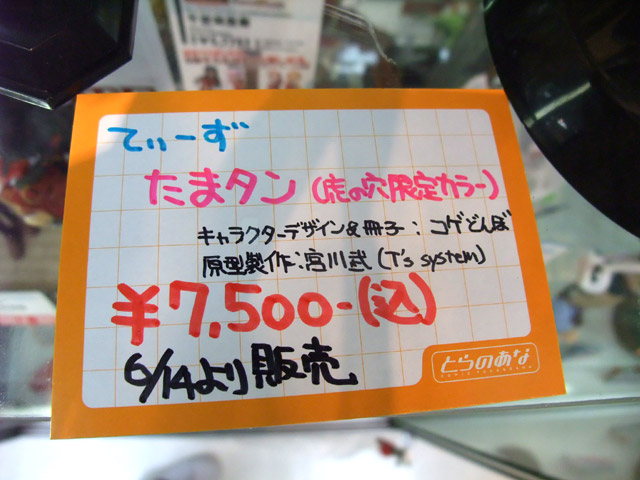 てぃーず
たまタン(虎の穴限定カラー)
キャラクターデザイン&冊子:コゲどんぼ
原型製作:宮川武(T's system)
¥7,500-(込)
6/14より販売
とらのあな